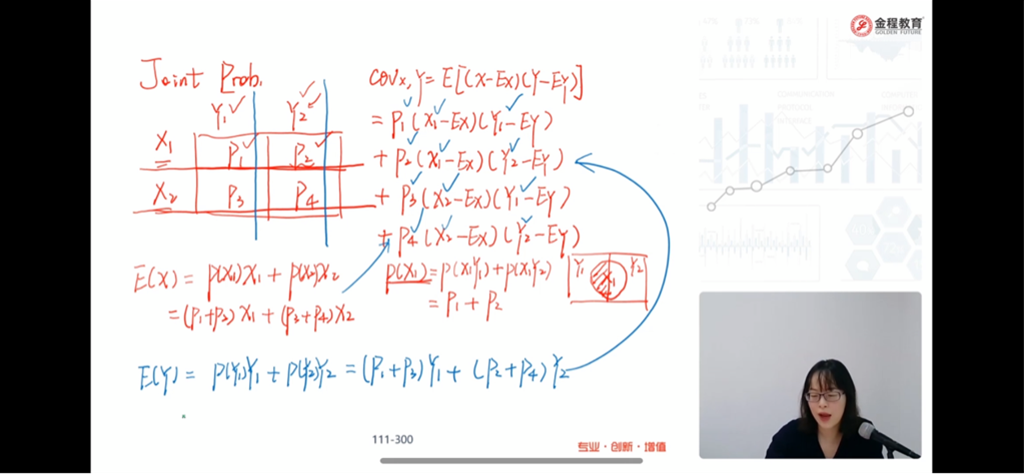 金程教育
GOLDEN FUTURE
Joint Prob.
Y₁ Y₂
X₁ P₁ P₂
X₂ P₃ P₄
COVx,y = E[(X-EX)(Y-EY)]
= P₁(X₁-EX)(Y₁-EY)
+ P₂(X₁-EX)(Y₂-EY)
+ P₃(X₂-EX)(Y₁-EY)
+ P₄(X₂-EX)(Y₂-EY)
E(X) = P(X₁)X₁ + P(X₂)X₂
= (P₁+P₂)X₁ + (P₃+P₄)X₂
P(X₁) = P(X₁Y₁) + P(X₁Y₂)
= P₁ + P₂
Y₁ X₁ Y₂
E(Y) = P(Y₁)Y₁ + P(Y₂)Y₂ = (P₁+P₃)Y₁ + (P₂+P₄)Y₂
111-300
专业·创新·增值